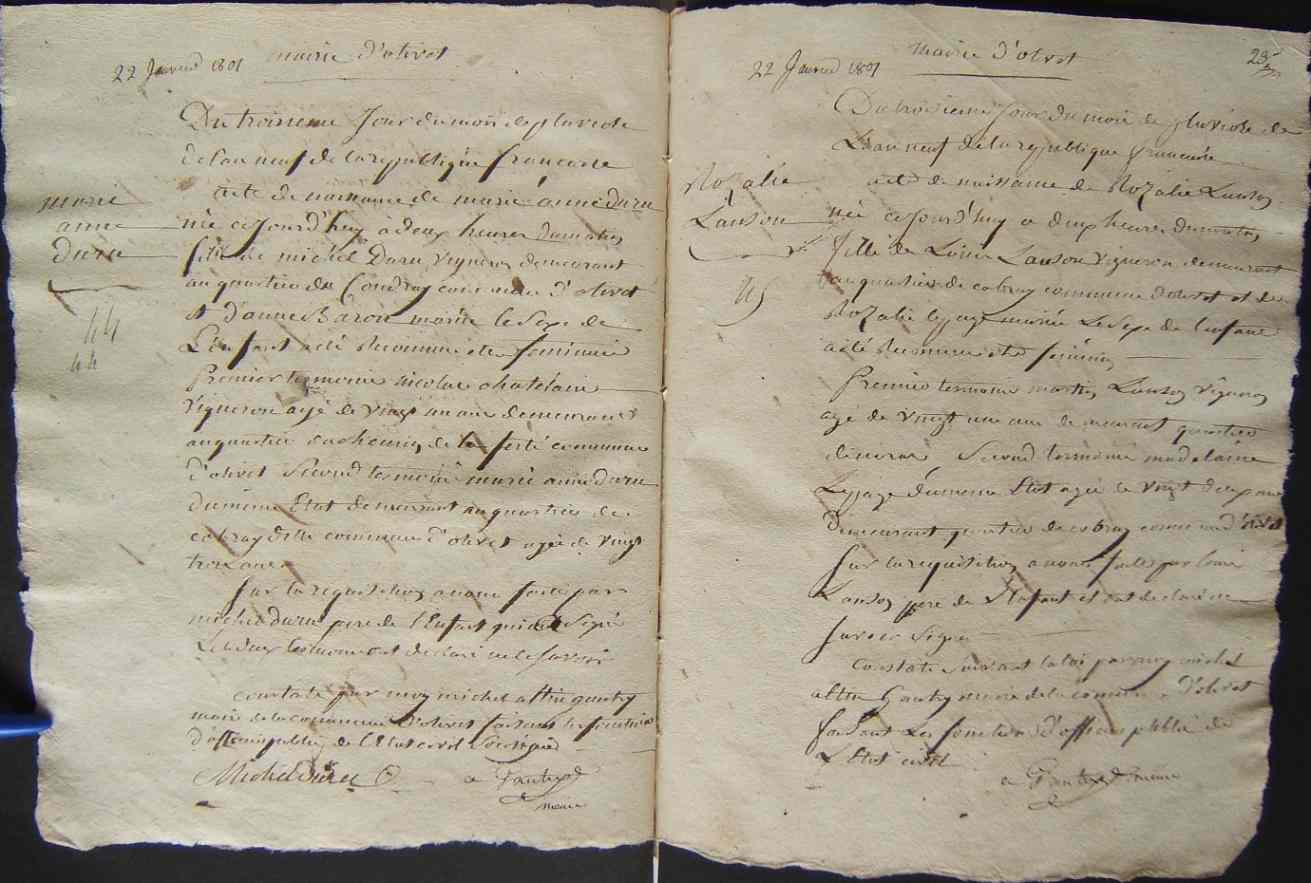 22 Janvier 1801
mairie d'olivet
Du troisieme Jour du mois de pluviose
de l'an neuf de la republique francaise
acte de naissance de marie anne duru
née cejourd'huy à deux heures du matin
fille de michel Daru vigneron demeurant
au quartier du Coudray commune d'olivet
et d'anne Baron mariée le Sexe de
L'enfant a été Reconnu etre feminin
Premier temoins nicolas chatelain
vigneron agé de vingt un ans demeurant
au quartier du chemin de la ferté commune
d'olivet Second temoin marie anne duru
du meme Etat demeurant au quartier de
cobray dite commune d'olivet agée de vingt
trois ans
Sur la requisition a nous faite par
michel duru pere de l'Enfant qui a Signé
Les deux temoins ont declaré ne le Savoir
constaté par moy michel altin gautry
maire de la commune d'olivet faisant les fonctions
d'officier public de l'Etat civil Soussigné
Michel Duru
a Gautry
maire
marie
anne
duru
44
44
22 Janvier 1801
mairie d'olivet
23
Du troisieme Jour du mois de pluviose de
L'an neuf de la republique francaise
acte de naissance de Rozalie Lanson
née cejourd'huy a deux heures du matin
fille de Louis Lanson vigneron demeurant
au quartier de cobray commune d'olivet et de
Rozalie lepage mariée Le Sexe de l'enfant
a été Reconnu etre feminin
Premier temoin martin Lanson vigneron
agé de vingt un ans demeurant quartier
Second temoin madelaine
Lepage du meme Etat agée de vingt deux ans
Demeurant quartier de cobray commune d'olivet
Sur la requisition a nous faite par louis
Lanson pere de l'Enfant et ont declaré ne
Savoir Signer
Constaté Suivant la loi par moy michel
altin Gautry maire de la commune d'olivet
faisant Les fonctions d'officier public de
L'Etat civil
a Gautry maire
Rozalie
Lanson
45